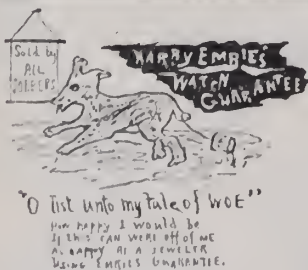 Sold by
ALL
JOBBERS
HARRY EMBIE'S
WATCH
GUARANTEE
"O list unto my tale of WOE"
How happy I would be
If this CAN WERE off of ME
AS HAPPY AS A JEWELER
USING EMBIES GUARANTEE.